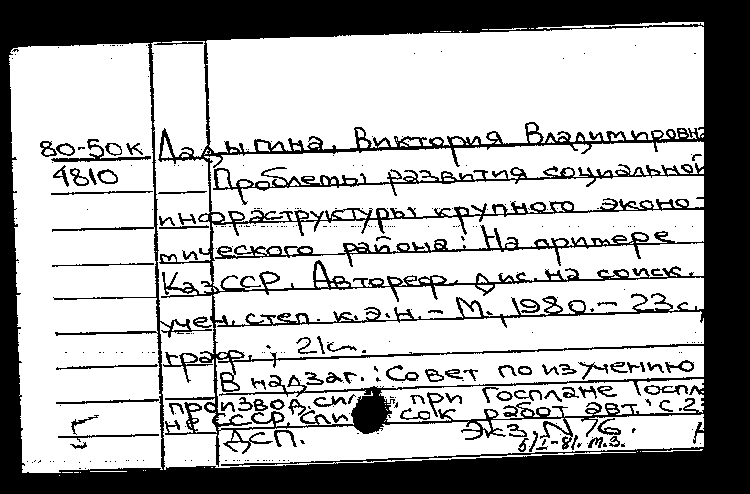 80-50к Ладыгина, Виктория Владимировна
4810 Проблемы развития социальной
инфраструктуры крупного эконо-
мического района: На примере
КазССР. Автореф. дис. на соиск.
учен. степ. к.э.н. - М., 1980. - 23 с.,
граф.; 21 см.
В надзаг.: Совет по изучению
производ. сил при Госплане Госпла
не СССР. Список работ авт.: с. 23
ДСП. Экз. N 76.
6/I-81. м.з.